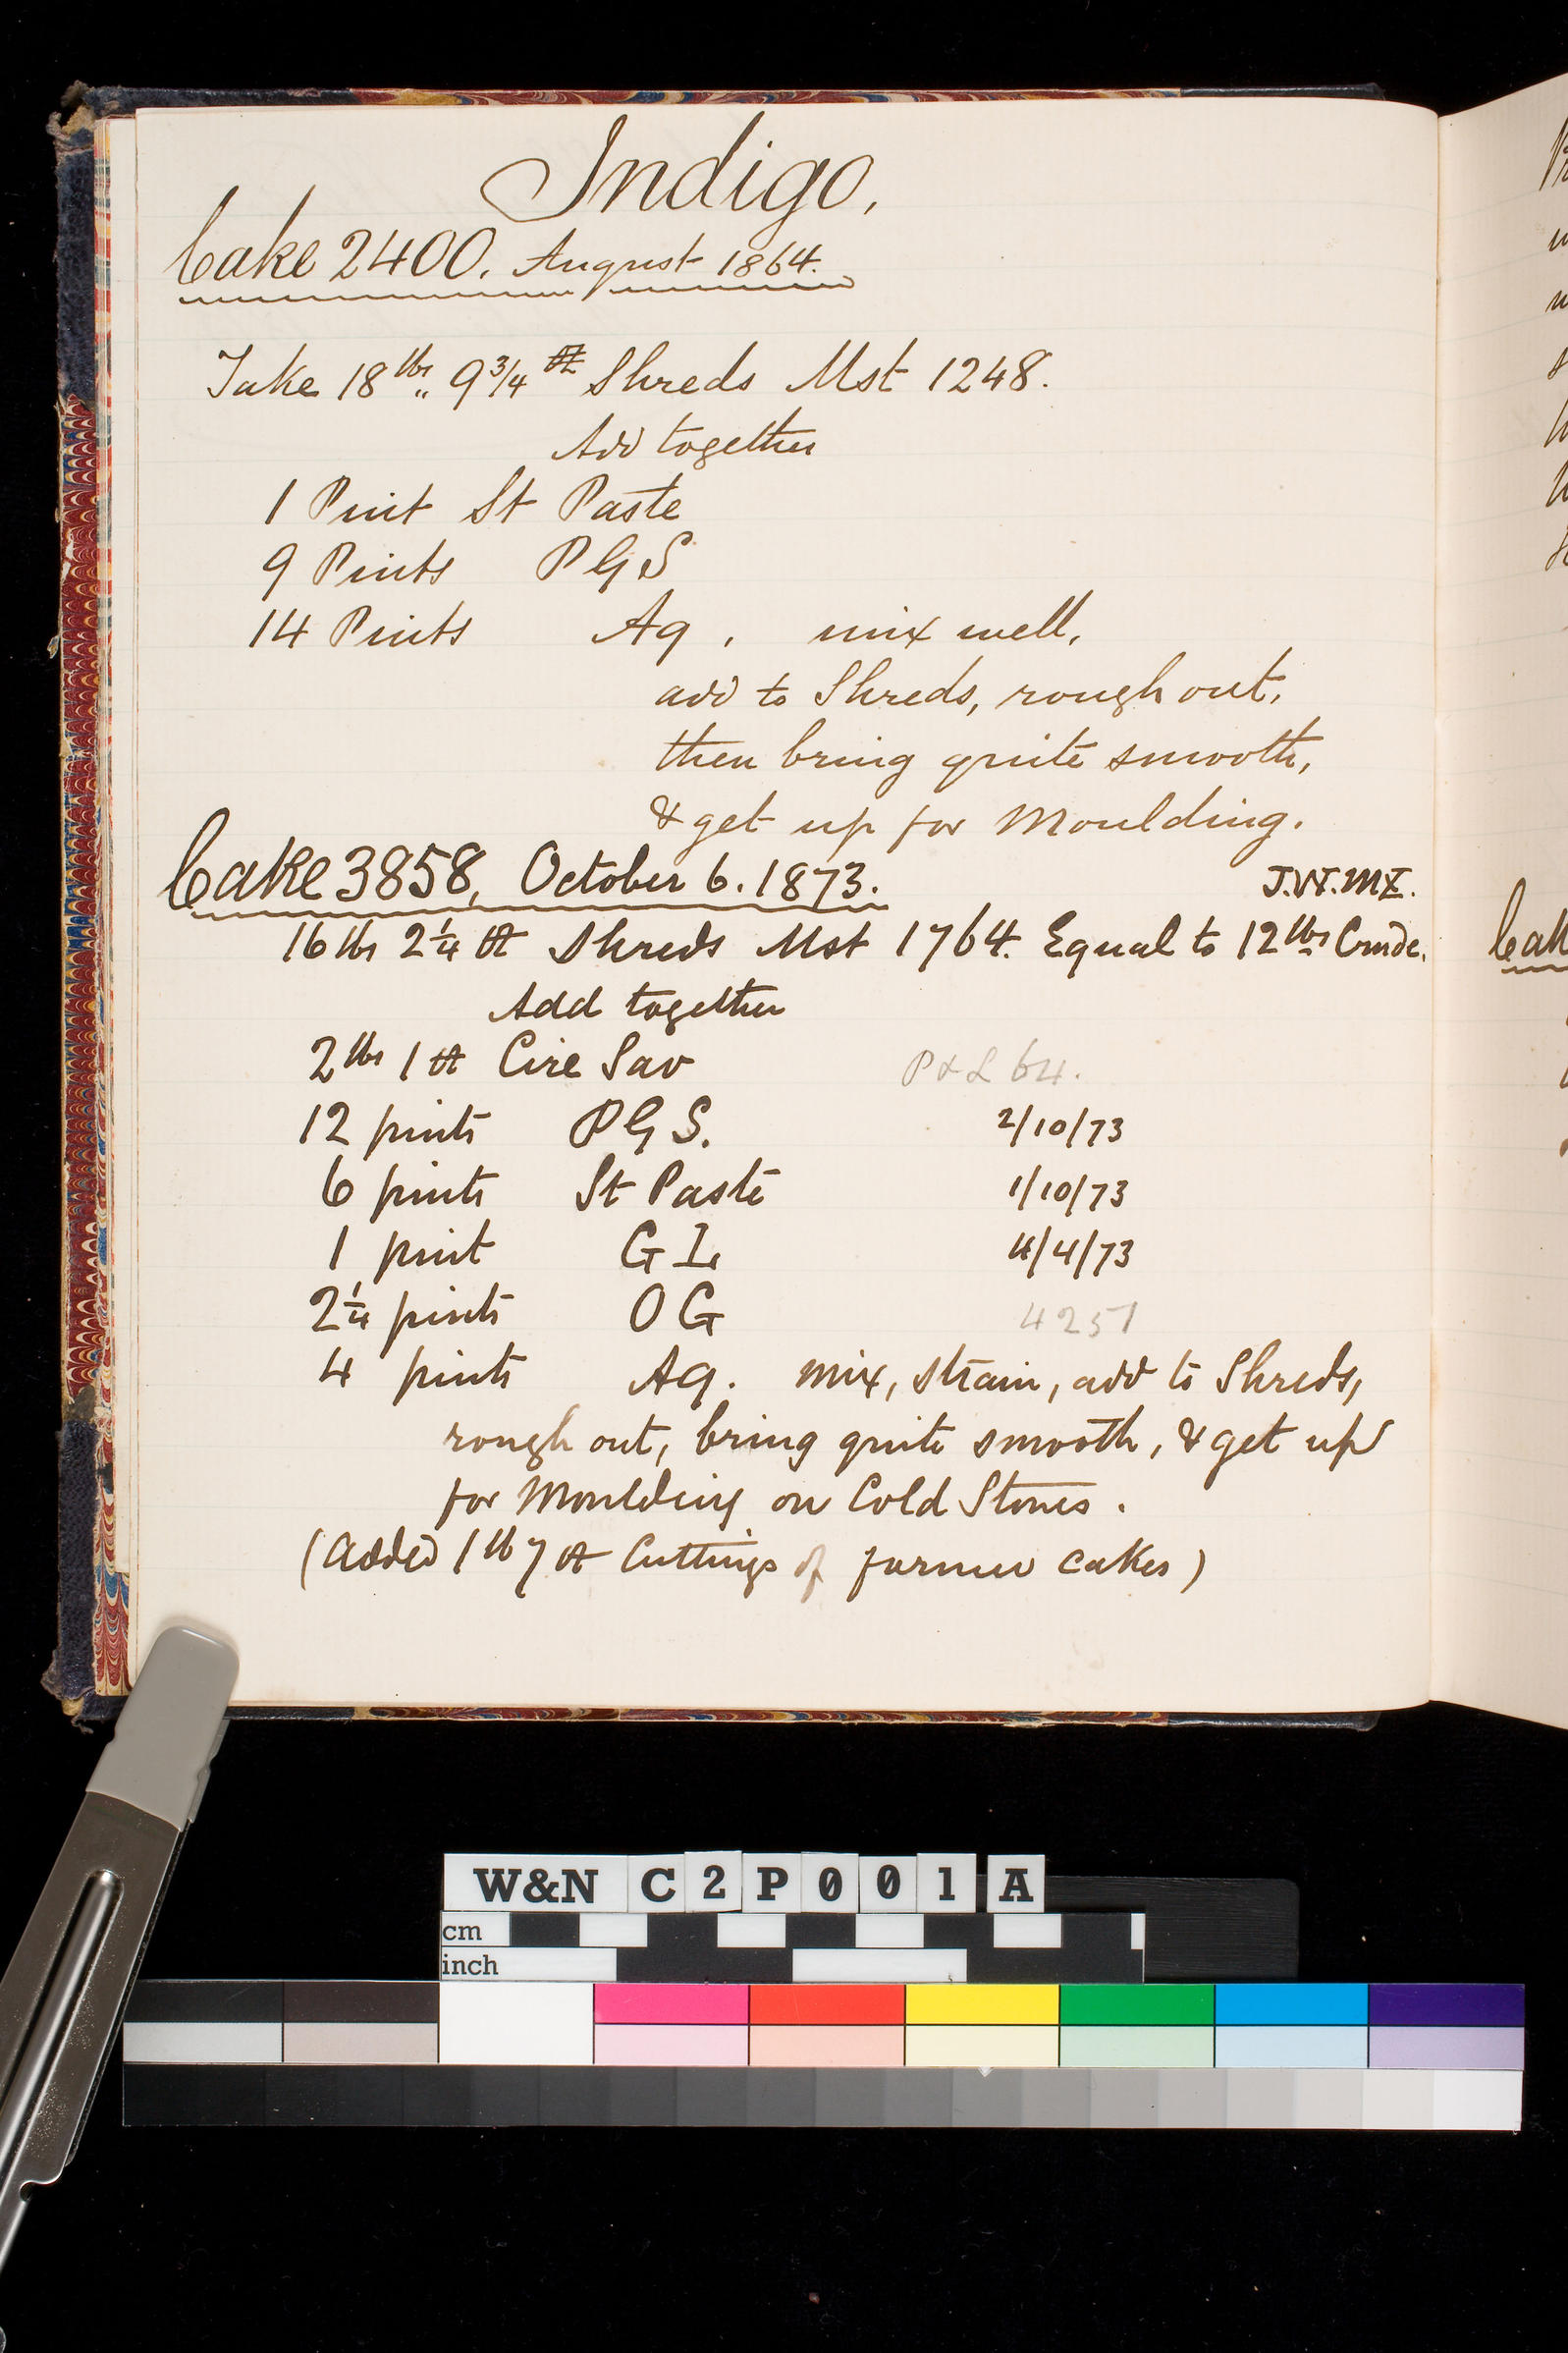 Indigo,
Cake 2400. August 1864.
Take 18 lbs. 9 3/4 Shreds Mst 1248.
Add together
1 Pint St Paste
9 Pints PGS
14 Pints Aq, mix well,
add to Shreds, rough out,
then bring quite smooth,
& get up for Moulding.
Cake 3858, October 6. 1873. J.W.
16 lbs 2 1/4 Shreds Mst 1764. Equal to 12 lbs Crude.
Add together
2 lbs 1 Cire Sav P & L 64.
12 pints PGS. 2/10/73
6 pints St Paste 1/10/73
1 pint G L 4/4/73
2 1/4 pints OG 4251
4 pints Aq. mix, strain, add to Shreds,
rough out, bring quite smooth, & get up
for Moulding on Cold Stones.
(Added 1 lb 7 Cuttings of former cakes)
Cak
W&N C2P001A
cm
inch